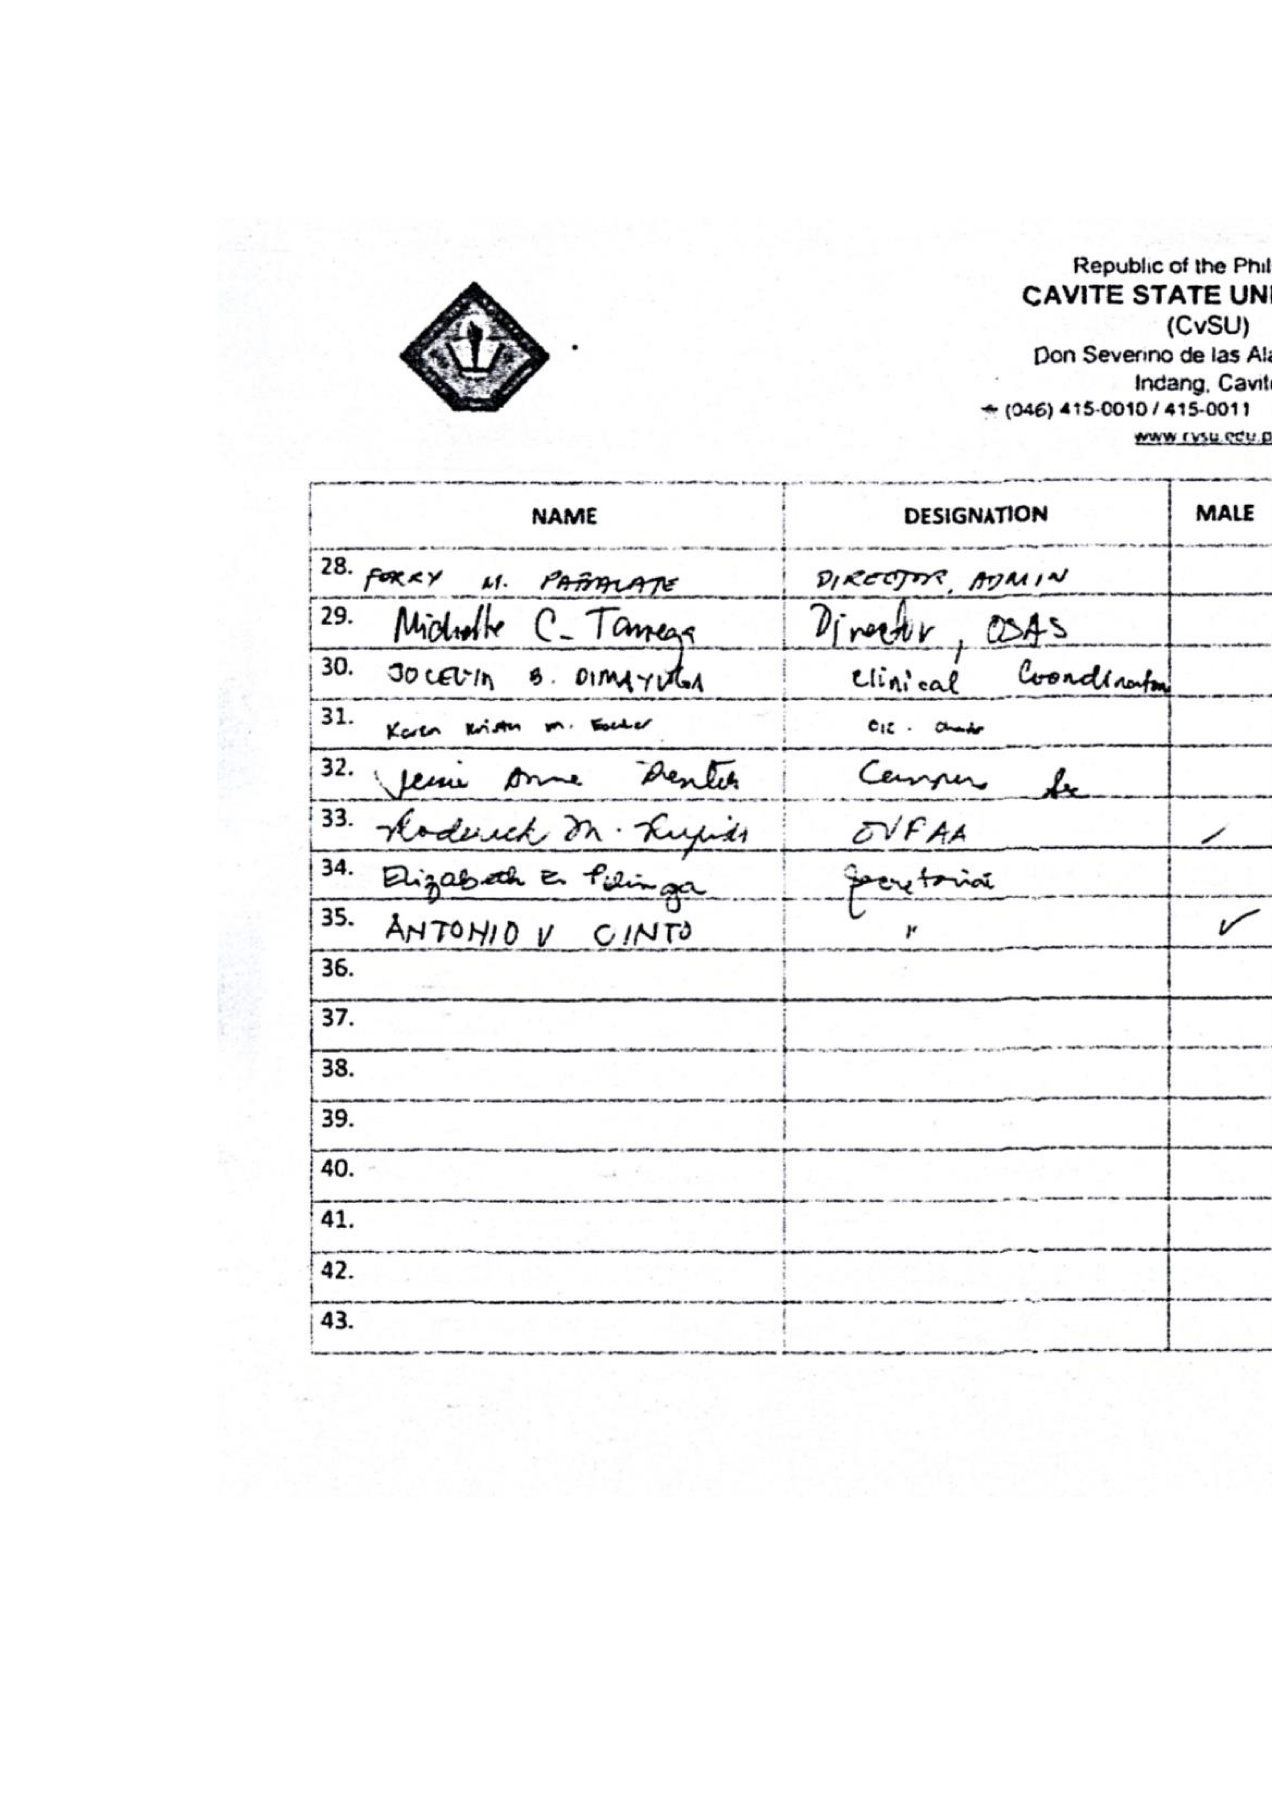 Republic of the Phil
CAVITE STATE UNI
(CvSU)
Don Severino de las Ala
Indang, Cavit
(046) 415-0010 / 415-0011
www.cvsu.edu.p
NAME DESIGNATION MALE
28. M. PAÑALATE DIRECTOR, ADMIN
29. Michelle C. Director, OSAS
30. B. DIMAYUGA Clinical Coordinator
31. Karen Kristin M. OIC -
32. Anne Campus
33. Roderick M. OVPAA
34. Elizabeth E. Polinga Secretariat
35. ANTONIO V CINTO "
36.
37.
38.
39.
40.
41.
42.
43.